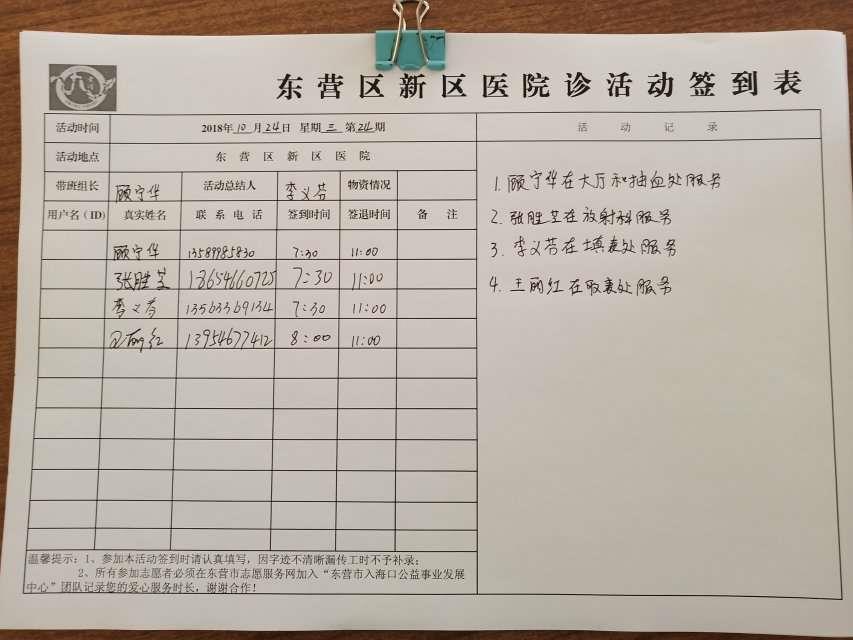 东营区新区医院诊活动签到表
活动时间 2018年10月24日 星期三 第24期
活动记录
活动地点 东营区新区医院
带班组长 顾宁华 活动总结人 李义芬 物资情况
用户名（ID） 真实姓名 联系电话 签到时间 签退时间 备注
顾宁华 13589985830 7:30 11:00
张胜芝 18654660725 7:30 11:00
李义芬 13563369134 7:30 11:00
王丽红 13954677412 8:00 11:00
1. 顾宁华在大厅和抽血处服务
2. 张胜芝在放射科服务
3. 李义芬在填表处服务
4. 王丽红在收表处服务
温馨提示：1、参加本活动签到时请认真填写，因字迹不清晰漏传工时不予补录；
2、所有参加志愿者必须在东营市志愿服务网加入“东营市入海口公益事业发展
中心”团队记录您的爱心服务时长，谢谢合作！